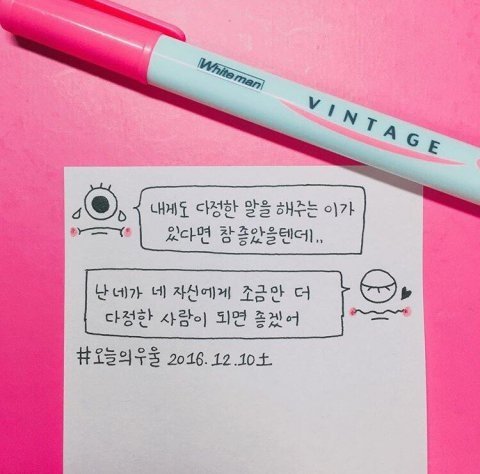 Whiteman
VINTAGE
내게도 다정한 말을 해주는 이가
있다면 참 좋았을텐데..
난 네가 네 자신에게 조금만 더
다정한 사람이 되면 좋겠어
#오늘의우울 2016.12.10土